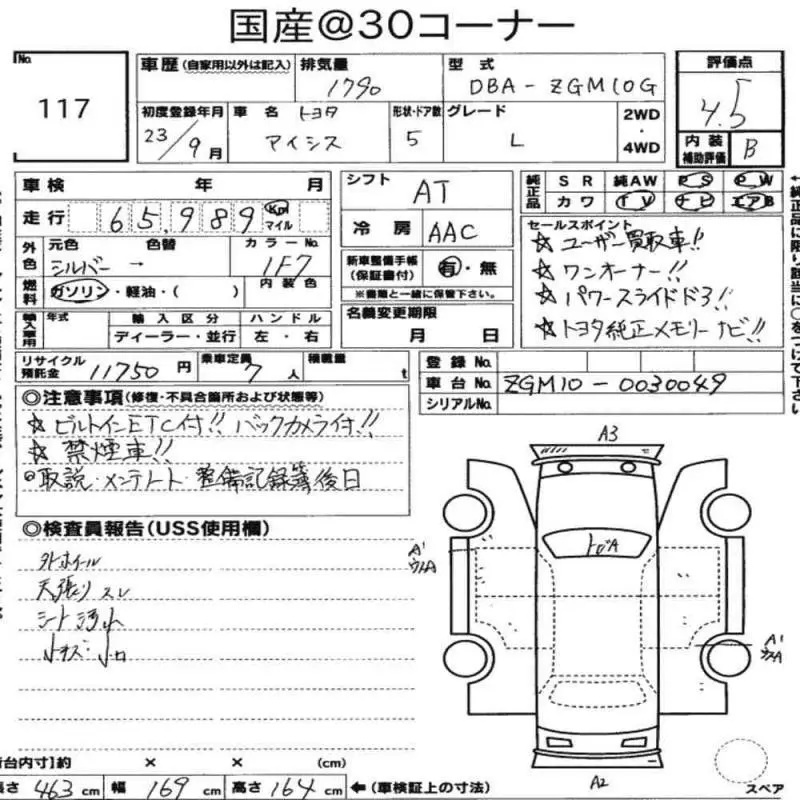 国産@30コーナー
No. 117
車歴 (自家用以外は記入)
排気量 1790
型式 DBA-ZGM10G
評価点 4.5
初度登録年月 23/9月
車名 トヨタ アイシス
形状・ドア数 5
グレード L
2WD・4WD
内装補助評価 B
車検 年 月
シフト AT
純正品 SR 純AW PS PW
カワ TV ナビ エアB
走行 65,989 Km マイル
冷房 AAC
セールスポイント
☆ユーザー買取車!!
☆ワンオーナー!!
☆パワースライドドア!!
☆トヨタ純正メモリーナビ!!
外色 元色 シルバー → 色替 カラーNo. 1F7
新車整備手帳(保証書付) 有・無
※書類と一緒に保管下さい。
燃料 ガソリン・軽油・( ) 内装色
名義変更期限 月 日
輸入車用 年式 輸入区分 ディーラー・並行 ハンドル 左・右
リサイクル預託金 11750円
乗車定員 7人
積載量 t
登録No.
車台No. ZGM10-0030049
シリアルNo.
◎注意事項(修復・不具合箇所および状態等)
☆ビルトインETC付!! バックカメラ付!!
☆禁煙車!!
◎取説・メンテノート・整備記録簿後日
◎検査員報告(USS使用欄)
外ホイール
天張りスレ
シート汚れ
小キズ・小凹
A3
A1
A1
A2
スペア
荷台内寸]約 × × (cm)
長さ 463cm 幅 169cm 高さ 164cm ←(車検証上の寸法)